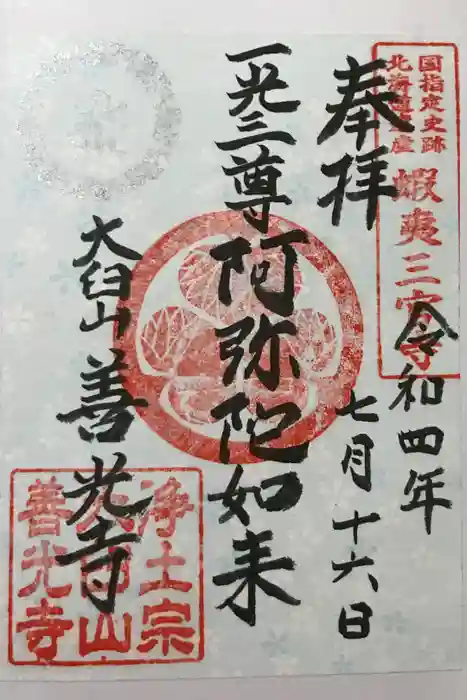 国指定史跡
北海道遺産
蝦夷三官寺
奉拝
令和四年
七月十六日
一光三尊阿弥陀如来
大臼山善光寺
浄土宗
大臼山
善光寺